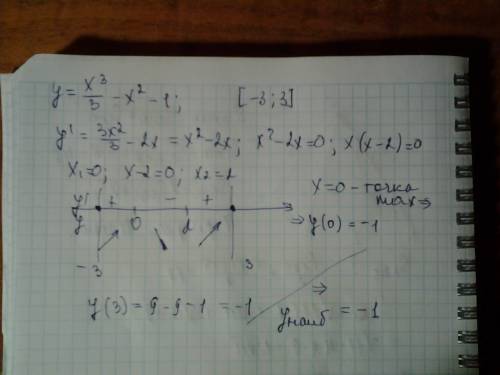 y = x³/3 - x² - 1; [-3; 3]
y' = 3x²/3 - 2x = x² - 2x; x² - 2x = 0; x(x-2) = 0
x₁ = 0; x - 2 = 0; x₂ = 2
x = 0 - точка
max ⇒
y' + - +
y 0 2
⇒ y(0) = -1
-3 3
y(3) = 9 - 9 - 1 = -1
⇒
yнаиб = -1